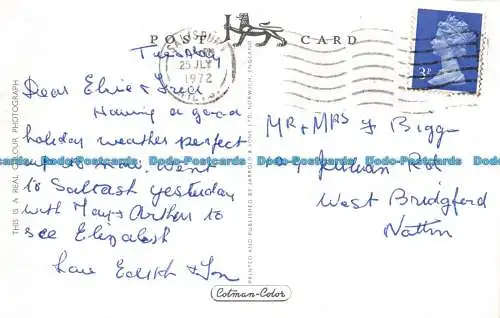 POST CARD
SALISBURY
25 JLY
1972
WILTS
3P
Tuesday
Dear Elsie & Fred
Having a good
holiday weather perfect
up to now. Went
to Saltash yesterday
with May & Arthur to
see Elizabeth
Love Edith &
MR & MRS F Bigg
Rd
West Bridgford
Nottm
THIS IS A REAL COLOUR PHOTOGRAPH
PRINTED AND PUBLISHED BY JARROLD & SONS LTD, NORWICH, ENGLAND
Cotman-Color
Dodo-Postcards Dodo-Postcards Dodo-Postcards Dodo-Postcards